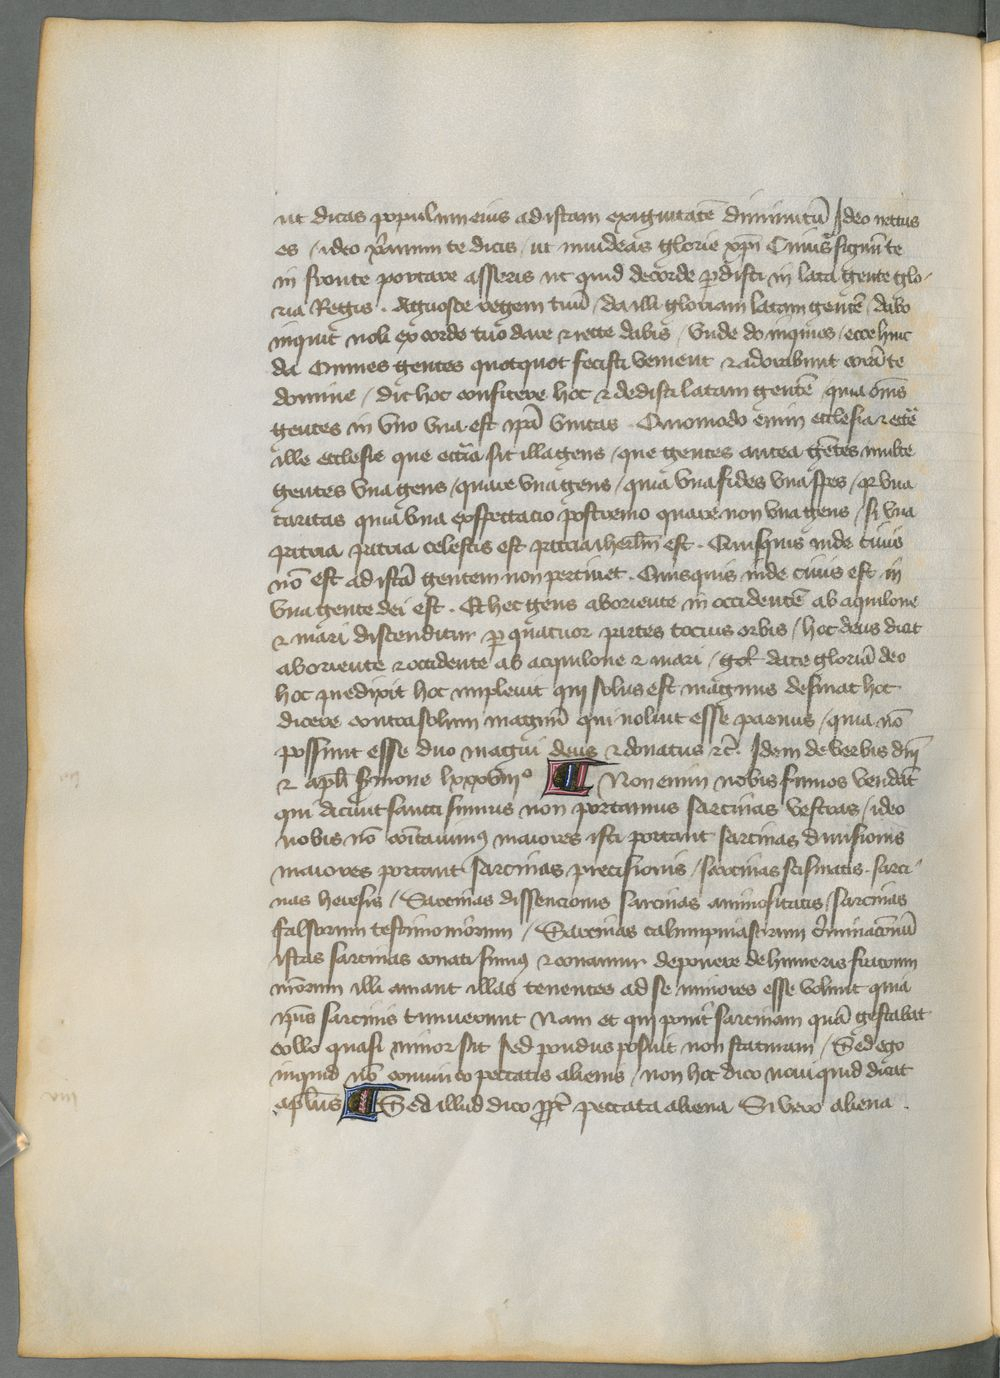 ut dicas populum eius ad istam exiguitatē diminutū Ideo victus
es / ideo xp̄ianum te dicis / ut invideas glorie xp̄i Cuius signū te
in fronte portare asseris ut quid de corde p̄didisti in lata gente glo-
ria Regis . Agnosce regem tuū / da illi gloriam latam gentē / dabo
inquit noli ex corde tuo dare et recte dabis / Unde do inquies / ecce hinc
da Omnes gentes quotquot fecisti venient et adorabunt corā te
domine / dic hoc confitere hoc et dedisti latam gentē quia om̄s
gentes in uno una est ip̄a unitas . Quomodo enim ecclesia et eccl̄e
ille ecclesie que eccl̄ia sic illa gens / que gentes antea gētes multe
gentes una gens / quare una gens / quia una fides una spes / q̄ una
caritas quia una expectacio postremo quare non una gens / si una
patria patria celestis est patria iherl̄m est . Quisquis inde civis
nō est ad istā gentem non pertinet . Quisquis inde civis est in
una gente dei est . Et hec gens ab oriente in occidentē ab aquilone
et mari distenditur p̄ quatuor partes tocius orbis / hoc deus dicit
ab oriente et occidente ab acquilone et mari / date gloriā deo
hoc predixit hoc implevit qui solus est magnus desinat hoc
dicere contra solum magnū qui noluit esse parvus / quia nō
possunt esse duo magni deus et donatus etc̄ . Idem de verbis dn̄i
et apl̄i s̄mone lxxxviiiº Non enim nobis fumos vendāt
qui dicunt sancti sumus non portamus sarcinas vestras / ideo
nobis nō cōicamus maiores isti portant sarcinas divisionis
maiores portant sarcinas precisionis / sarcinas scismatis . sarci-
nas heresis / Sarcinas dissencionis sarcinas animositatis / sarcinas
falsorum testimoniorum / Sarcinas calumpniosarum c̄minacionū
istas sarcinas conati sumus et conamur deponere de humeris fratrum
nostrorum illi amant illas tenentes ad se minores esse volunt quia
ip̄is sarcinis tumuerunt Nam et qui ponit sarcinam quā gestabat
collo quasi minor sit sed pondus posuit non staturam / Sed ego
inquid nō communico peccatis alienis / non hoc dico numquid dicat
apl̄us Sed illud dico pp̄t peccata aliena Si vero aliena .